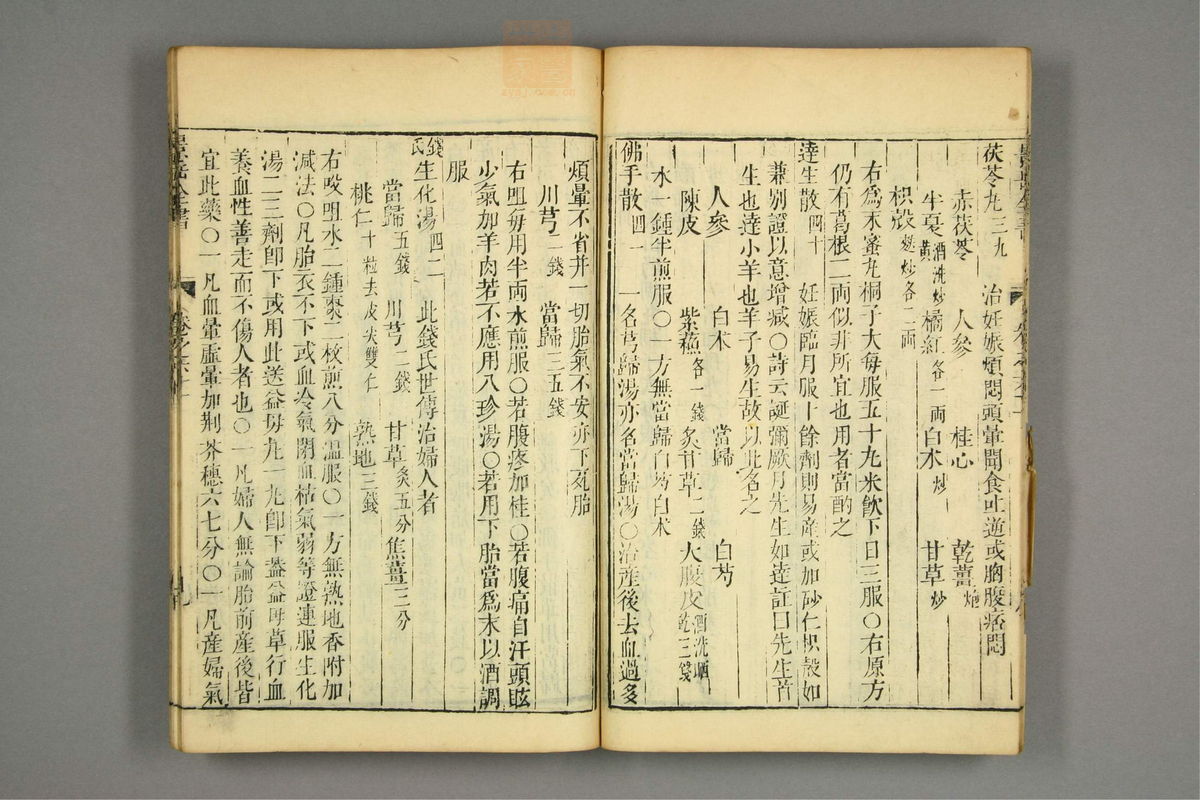 茯苓丸三九 治妊娠煩悶頭暈聞食吐逆或胸腹痞悶
赤茯苓 人參 桂心 乾薑炮
半夏酒洗炒黃 橘紅各一両 白朮炒 甘草炒
枳殼麸炒各二両
右爲末蜜丸桐子大每服五十丸米飲下日三服〇右原方
仍有葛根二両似非所宜也用者當酌之
達生散四十 妊娠臨月服十餘劑則易産或加砂仁枳殼如
兼別證以意增減〇詩云誕彌厥月先生如達註曰先生首
生也達小羊也羊子易生故以此名之
人參 白朮 當歸 白芍
陳皮 紫蘇各一錢 炙甘草二錢 大腹皮酒洗晒乾三錢
水一鍾半煎服〇一方無當歸白芍白朮
佛手散四一 一名芎歸湯亦名當歸湯〇治産後去血過多
煩暈不省并一切胎氣不安亦下死胎
川芎二錢 當歸三五錢
右㕮每用半両水煎服〇若腹疼加桂〇若腹痛自汗頭眩
少氣加羊肉若不應用八珍湯〇若用下胎當爲末以酒調
服
錢氏生化湯四二 此錢氏世傳治婦人者
當歸五錢 川芎二錢 甘草炙五分 焦薑三分
桃仁十粒去皮尖雙仁 熟地三錢
右㕮咀水二鍾棗二枚煎八分温服〇一方無熟地香附加
減法〇凡胎衣不下或血冷氣閉血枯氣弱等證連服生化
湯二三劑卽下或用此送益母丸一丸卽下蓋益母草行血
養血性善走而不傷人者也〇一凡婦人無論胎前産後皆
宜此藥〇一凡血暈虛暈加荆芥穗六七分〇一凡産婦氣